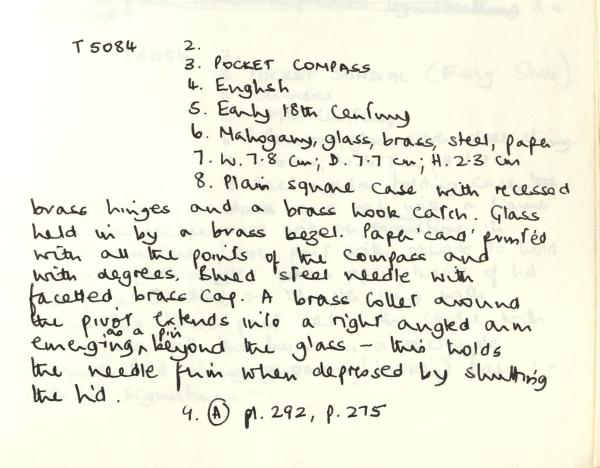 T5084 2.
3. POCKET COMPASS
4. English
5. Early 18th Century
6. Mahogany, glass, brass, steel, paper
7. W. 7.8 cm; D. 7.7 cm; H. 2.3 cm
8. Plain square case with recessed
brass hinges and a brass hook catch. Glass
held in by a brass bezel. Paper 'card' printed
with all the points of the compass and
with degrees. Blued steel needle with
facetted brass cap. A brass collet around
the pivot extends into a right angled arm
emerging as a pin beyond the glass – this holds
the needle firm when depressed by shutting
the lid.
9. (A) pl. 292, p. 275